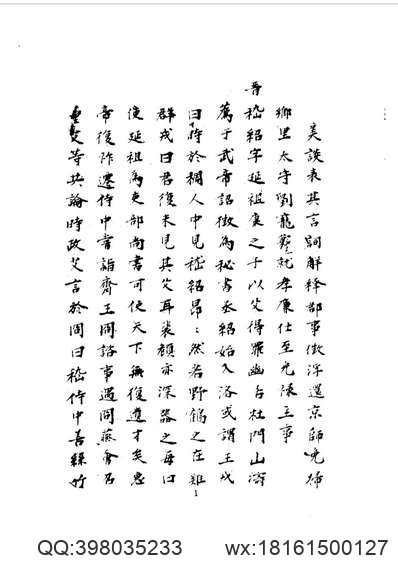 美談表其言詞解釋部事徵浮還京師免歸
鄉里太守劉寵就孝廉仕至光祿主事
晉嵇紹字延祖康之子以父得罪幽居杜門山濤
薦于武帝詔徵為秘書丞紹始入洛或謂王戎
曰昨於稠人中見嵇紹昂:然若野鶴之在雞
群戎曰君復未見其父耳裴頠亦深器之每曰
使延祖為吏部尚書可使天下無復遺才矣惠
帝復阼遷侍中嘗詣齊王冏諮事遇冏燕會召
董艾等共論時政艾言於冏曰嵇侍中善絲竹
1
QQ:398035233 wx:18161500127